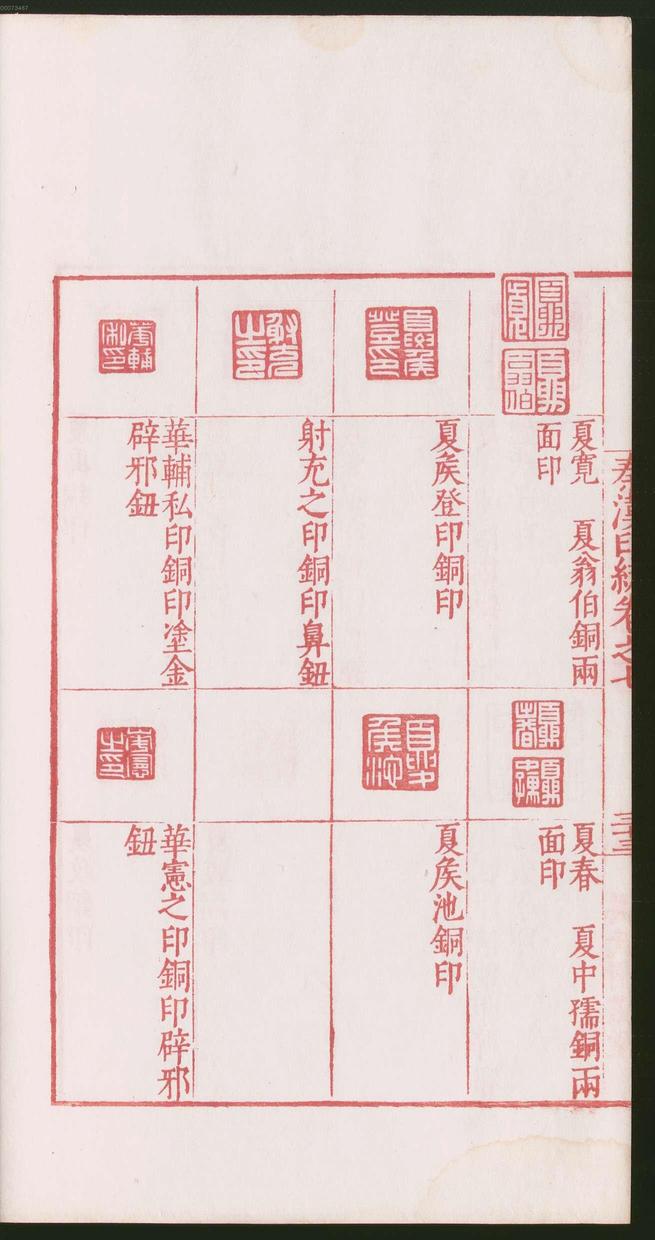 00073467
秦漢印統卷之七
三十三
夏寬　夏翁伯銅兩
面印
夏矦登印銅印
射充之印銅印鼻鈕
華輔私印銅印塗金
辟邪鈕
夏春　夏中孺銅兩
面印
夏矦池銅印
華憲之印銅印辟邪
鈕